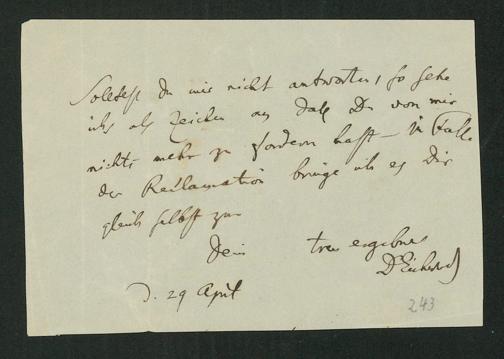 Solltest du mir nicht antworten, so sehe
ichs als Zeichen an daß Du von mir
nichts mehr zu fordern hast – im Falle
der Reclamation bringe ich es Dir
gleich selbst zu
Dein treu ergebner
d. 29 April
243